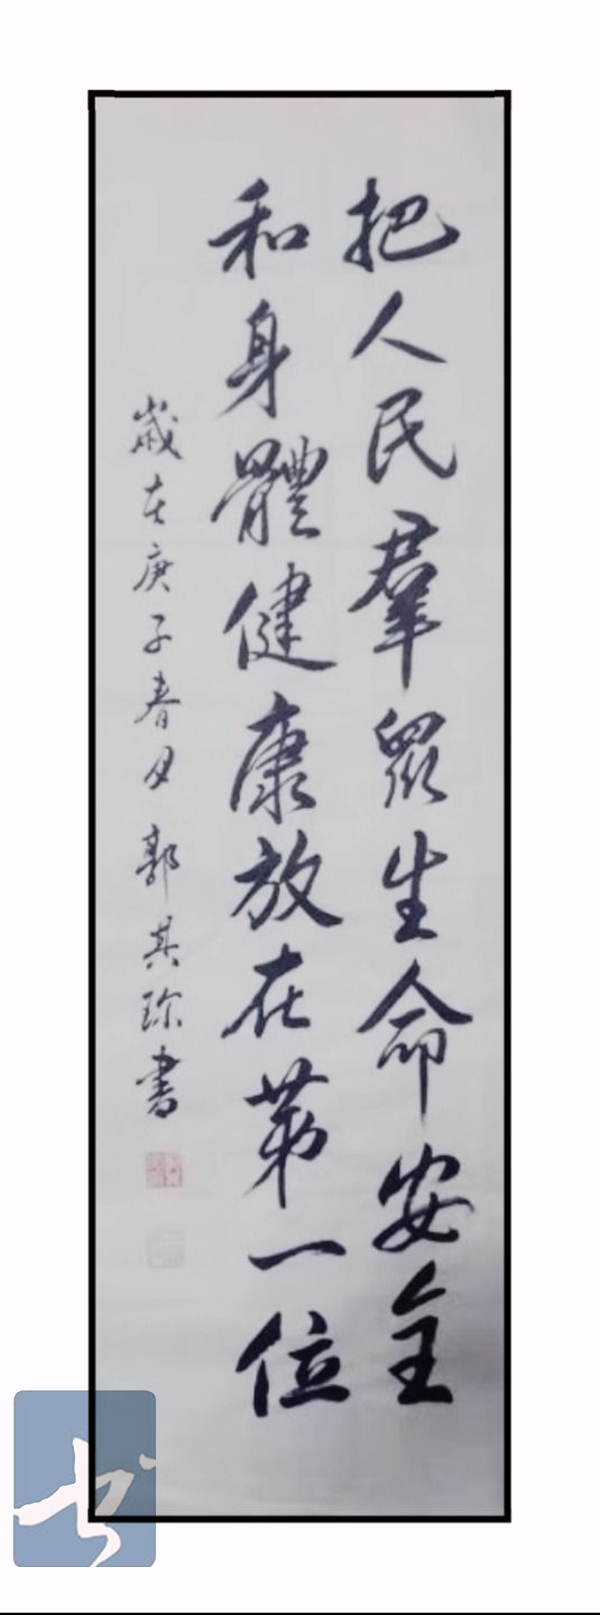 把人民羣眾生命安全
和身體健康放在第一位
歲在庚子春月郭其珍書
书